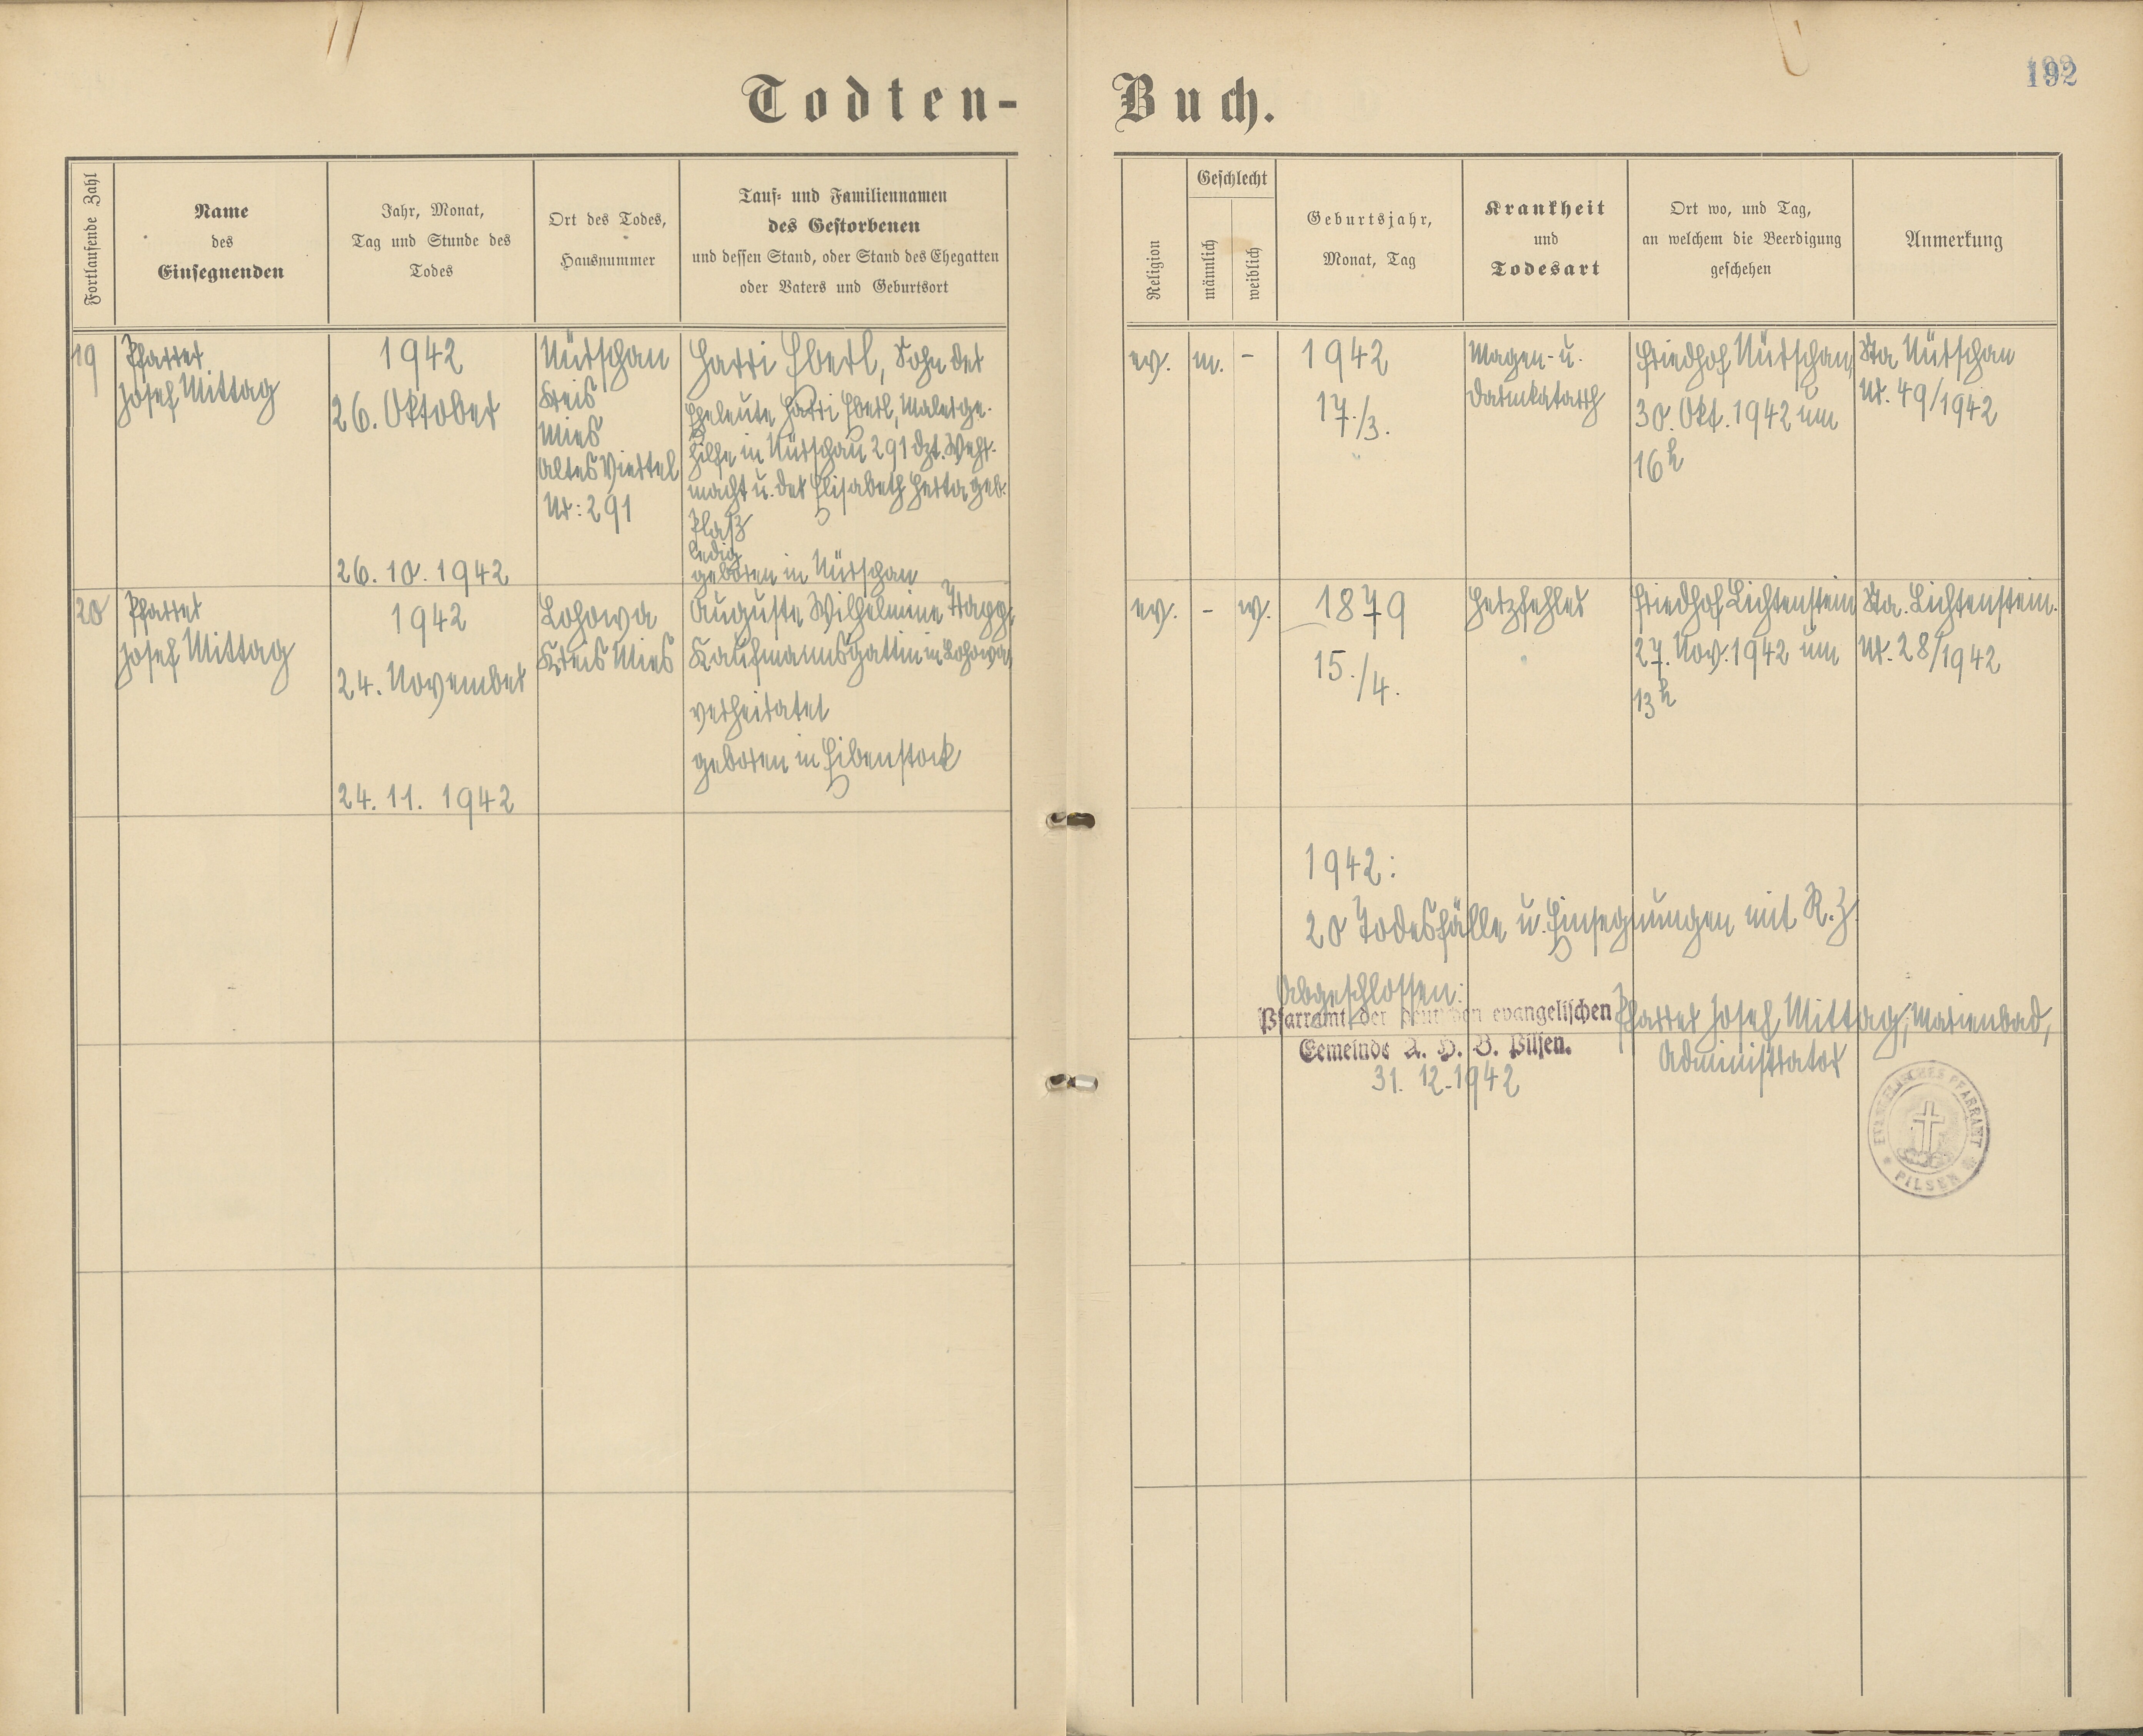 192
Todten-Buch.
Fortlaufende Zahl
Name
des
Einsegnenden
Jahr, Monat,
Tag und Stunde des
Todes
Ort des Todes,
Hausnummer
Tauf- und Familiennamen
des Gestorbenen
und dessen Stand, oder Stand des Ehegatten
oder Vaters und Geburtsort
Religion
Geschlecht
männlich
weiblich
Geburtsjahr,
Monat, Tag
Krankheit
und
Todesart
Ort wo, und Tag,
an welchem die Beerdigung
geschehen
Anmerkung
19
Pfarrer
Josef Mittag
1942
26. Oktober
26. 10. 1942
Nürschan
Kreis
Mies
Altes Viertel
Nr: 291
Harri Eberl, Sohn der
Eheleute Harri Eberl, Malerge-
hilfe in Nürschan 291 dzt. Wehr-
macht u. der Elisabeth Herta geb.
ledig
geboren in Nürschan
ev.
m.
-
1942
17./3.
Magen- u.
Darmkatarrh
Friedhof Nürschan
30. Okt. 1942 um
16h
Sta Nürschan
Nr. 49/1942
20
Pfarrer
Josef Mittag
1942
24. November
24. 11. 1942
Lohowa
Kreis Mies
Auguste Wilhelmine
Kaufmannsgattin in Lohowa,
verheiratet
geboren in Eibenstock
ev.
-
w.
1879
15./4.
Herzfehler
Friedhof Lichtenstein
27. Nov. 1942 um
13h
Sta. Lichtenstein.
Nr. 28/1942
1942:
20 Todesfälle u. Einsegnungen mit R.Z.
Abgeschlossen:
Pfarramt der deutschen evangelischen
Gemeinde A. H. B. Pilsen.
31. 12. 1942
Pfarrer Josef Mittag, Marienbad,
Administrator
EVANGELISCHES PFARRAMT
PILSEN